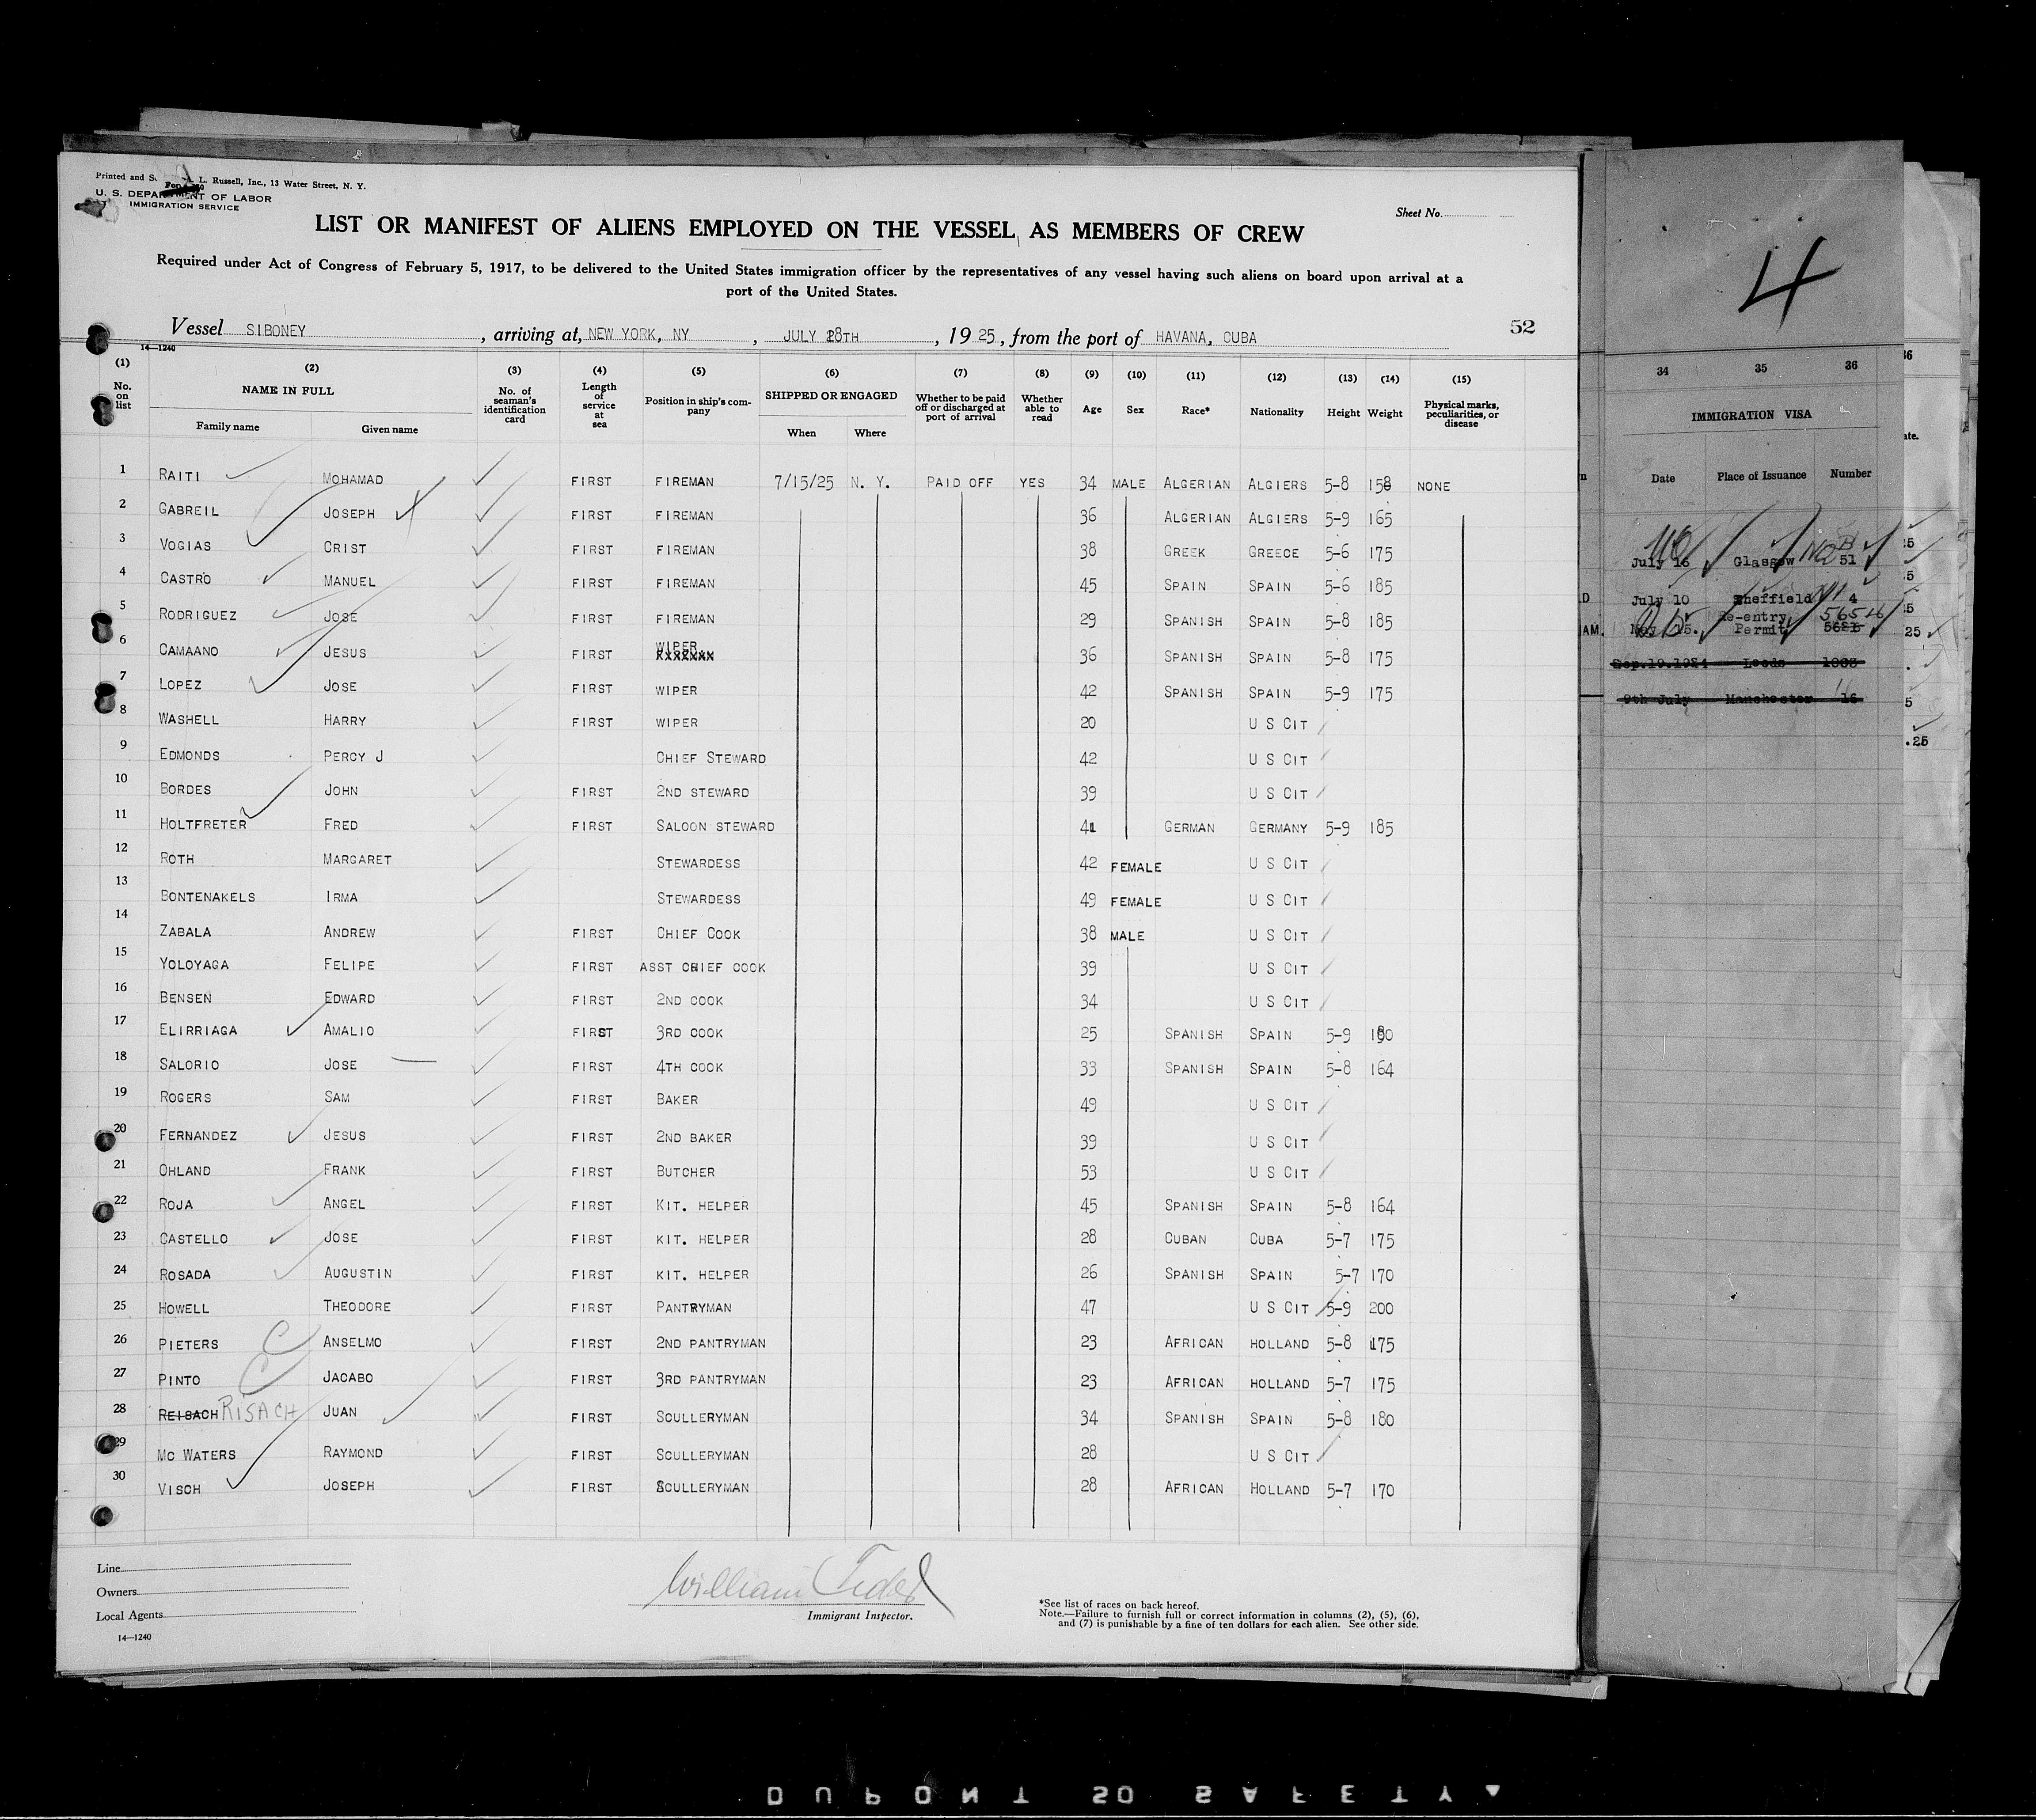 Printed and L. Russell, Inc., 13 Water Street, N. Y.
U. S. DEPARTMENT OF LABOR
IMMIGRATION SERVICE
Sheet No.
LIST OR MANIFEST OF ALIENS EMPLOYED ON THE VESSEL AS MEMBERS OF CREW
Required under Act of Congress of February 5, 1917, to be delivered to the United States immigration officer by the representatives of any vessel having such aliens on board upon arrival at a
port of the United States.
52
Vessel SIBONEY, arriving at, NEW YORK, NY, JULY 28TH, 1925, from the port of HAVANA, CUBA
14—1240
(1) (2) (3) (4) (5) (6) (7) (8) (9) (10) (11) (12) (13) (14) (15)
No. on list NAME IN FULL Family name Given name No. of seaman's identification card Length of service at sea Position in ship's company SHIPPED OR ENGAGED When Where Whether to be paid off or discharged at port of arrival Whether able to read Age Sex Race* Nationality Height Weight Physical marks, peculiarities, or disease
1 RAITI MOHAMAD FIRST FIREMAN 7/15/25 N. Y. PAID OFF YES 34 MALE ALGERIAN ALGIERS 5-8 158 NONE
2 GABREIL JOSEPH FIRST FIREMAN 36 ALGERIAN ALGIERS 5-9 165
3 VOGIAS CRIST FIRST FIREMAN 38 GREEK GREECE 5-6 175
4 CASTRO MANUEL FIRST FIREMAN 45 SPAIN SPAIN 5-6 185
5 RODRIGUEZ JOSE FIRST FIREMAN 29 SPANISH SPAIN 5-8 185
6 CAMAANO JESUS FIRST WIPER 36 SPANISH SPAIN 5-8 175
7 LOPEZ JOSE FIRST WIPER 42 SPANISH SPAIN 5-9 175
8 WASHELL HARRY FIRST WIPER 20 U S CIT
9 EDMONDS PERCY J CHIEF STEWARD 42 U S CIT
10 BORDES JOHN FIRST 2ND STEWARD 39 U S CIT
11 HOLTFRETER FRED FIRST SALOON STEWARD 41 GERMAN GERMANY 5-9 185
12 ROTH MARGARET STEWARDESS 42 FEMALE U S CIT
13 BONTENAKELS IRMA STEWARDESS 49 FEMALE U S CIT
14 ZABALA ANDREW FIRST CHIEF COOK 38 MALE U S CIT
15 YOLOYAGA FELIPE FIRST ASST CHIEF COOK 39 U S CIT
16 BENSEN EDWARD FIRST 2ND COOK 34 U S CIT
17 ELIRRIAGA AMALIO FIRST 3RD COOK 25 SPANISH SPAIN 5-9
18 SALORIO JOSE FIRST 4TH COOK 33 SPANISH SPAIN 5-8 164
19 ROGERS SAM FIRST BAKER 49 U S CIT
20 FERNANDEZ JESUS FIRST 2ND BAKER 39 U S CIT
21 OHLAND FRANK FIRST BUTCHER 53 U S CIT
22 ROJA ANGEL FIRST KIT. HELPER 45 SPANISH SPAIN 5-8 164
23 CASTELLO JOSE FIRST KIT. HELPER 28 CUBAN CUBA 5-7 175
24 ROSADA AUGUSTIN FIRST KIT. HELPER 26 SPANISH SPAIN 5-7 170
25 HOWELL THEODORE FIRST PANTRYMAN 47 U S CIT 5-9 200
26 PIETERS C ANSELMO FIRST 2ND PANTRYMAN 23 AFRICAN HOLLAND 5-8 175
27 PINTO C JACABO FIRST 3RD PANTRYMAN 23 AFRICAN HOLLAND 5-7 175
28 REISACH RISACH JUAN FIRST SCULLERYMAN 34 SPANISH SPAIN 5-8 180
29 MC WATERS RAYMOND FIRST SCULLERYMAN 28 U S CIT
30 VISCH JOSEPH FIRST SCULLERYMAN 28 AFRICAN HOLLAND 5-7 170
Line
Owners
Local Agents
14—1240
William
Immigrant Inspector.
*See list of races on back hereof.
Note.—Failure to furnish full or correct information in columns (2), (5), (6),
and (7) is punishable by a fine of ten dollars for each alien. See other side.
4
34 35 36
IMMIGRATION VISA
Date Place of Issuance Number
July 16 Glasgow 51
July 10 Sheffield 4
Re-entry
15. Permit
Sep.19.1924 Leeds 1003
9th July Manchester 16
DUPONT SAFETY